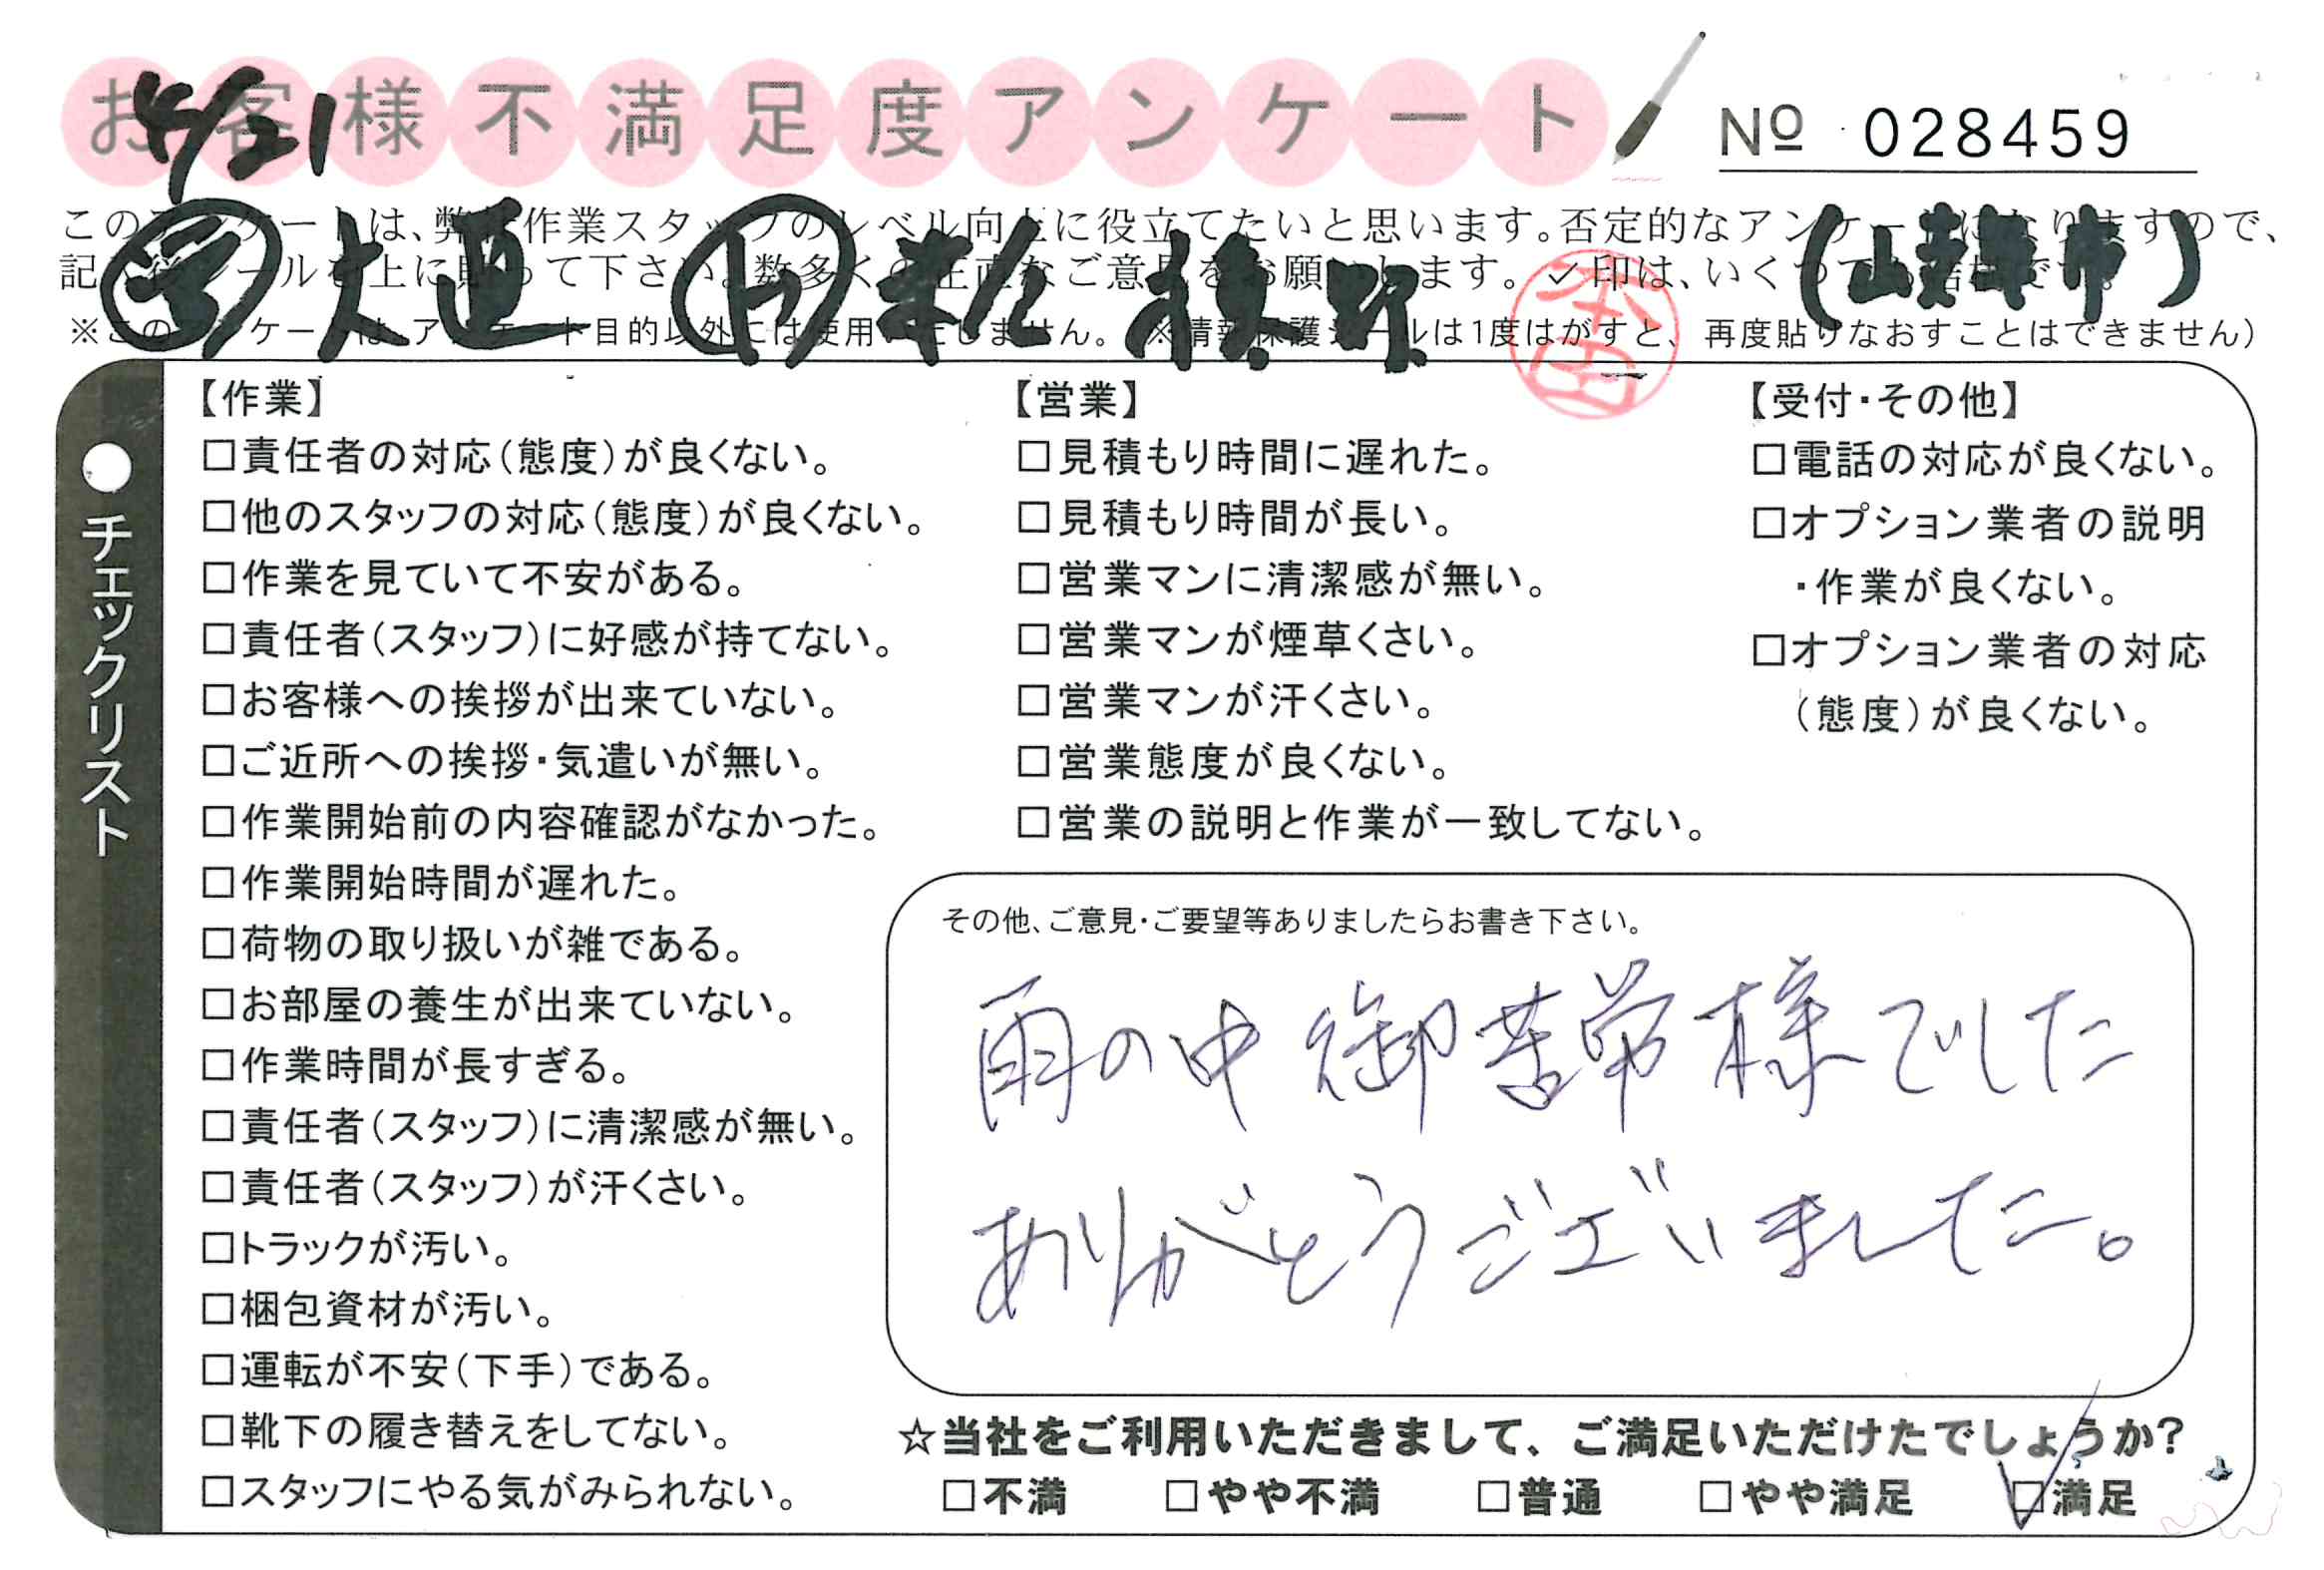 お客様不満足度アンケート
4/21
Nº 028459
このアンケートは、弊社作業スタッフのレベル向上に役立てたいと思います。否定的なアンケートになりますので、
記入後シールを上に貼って下さい。数多くの正直なご意見をお願いします。✓印は、いくつでも結構です。
※このアンケートは、アンケート目的以外には使用いたしません。 ※情報保護シールは1度はがすと、再度貼りなおすことはできません）
大迫
本田
チェックリスト
【作業】
□責任者の対応（態度）が良くない。
□他のスタッフの対応（態度）が良くない。
□作業を見ていて不安がある。
□責任者（スタッフ）に好感が持てない。
□お客様への挨拶が出来ていない。
□ご近所への挨拶・気遣いが無い。
□作業開始前の内容確認がなかった。
□作業開始時間が遅れた。
□荷物の取り扱いが雑である。
□お部屋の養生が出来ていない。
□作業時間が長すぎる。
□責任者（スタッフ）に清潔感が無い。
□責任者（スタッフ）が汗くさい。
□トラックが汚い。
□梱包資材が汚い。
□運転が不安（下手）である。
□靴下の履き替えをしてない。
□スタッフにやる気がみられない。
【営業】
□見積もり時間に遅れた。
□見積もり時間が長い。
□営業マンに清潔感が無い。
□営業マンが煙草くさい。
□営業マンが汗くさい。
□営業態度が良くない。
□営業の説明と作業が一致してない。
【受付・その他】
□電話の対応が良くない。
□オプション業者の説明
・作業が良くない。
□オプション業者の対応
（態度）が良くない。
その他、ご意見・ご要望等ありましたらお書き下さい。
雨の中 御苦労様でした
ありがとうございました。
☆当社をご利用いただきまして、ご満足いただけたでしょうか？
□不満 □やや不満 □普通 □やや満足 ☑満足